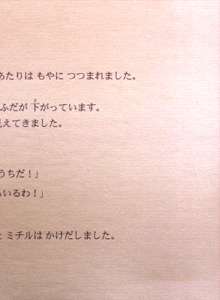 あたりは もやに つつまれました。
ふだが 下がっています。
見えてきました。
うちだ！」
いるわ！」
ミチルは かけだしました。